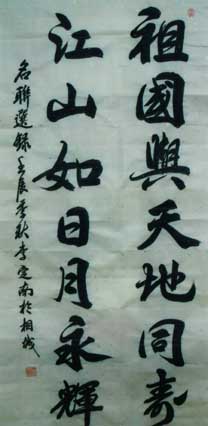 祖國與天地同壽
江山如日月永輝
名聯選錄壬辰季秋李定南於相城